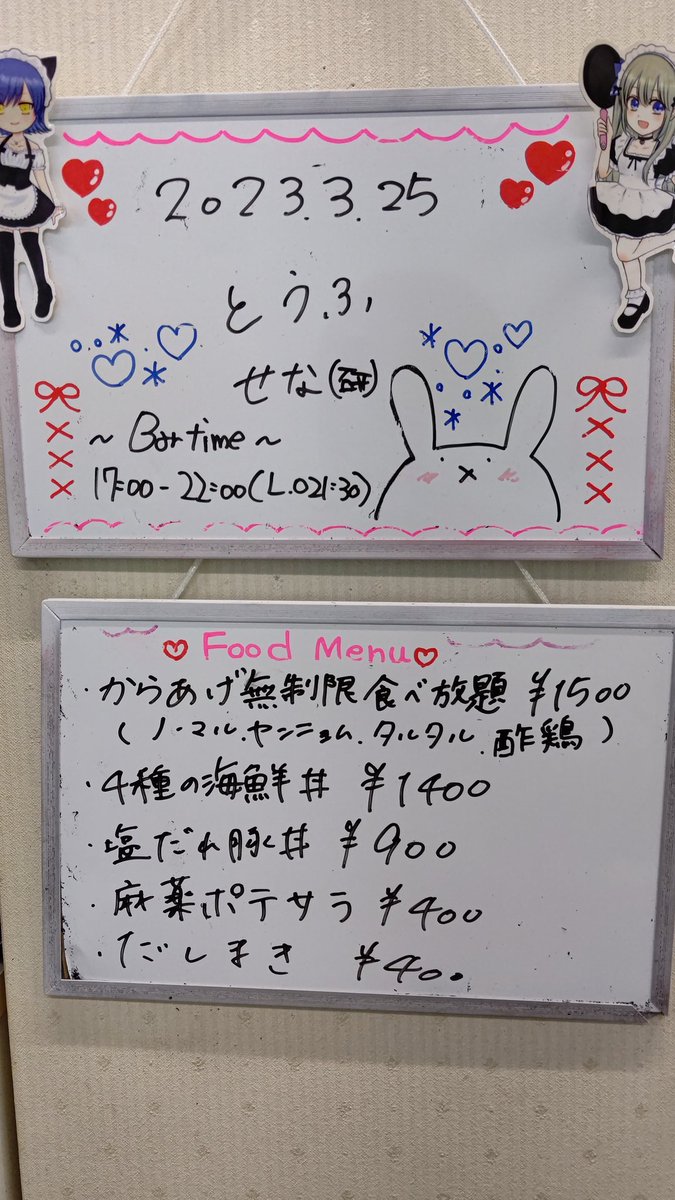 2023.3.25
とうふ
せな(研)
～Bartime～
17:00-22:00(L.O21:30)
Food Menu
・からあげ無制限食べ放題 ¥1500
(ノーマル.ヤンニョム.タルタル.酢鶏)
・4種の海鮮丼 ¥1400
・塩だれ豚丼 ¥900
・麻薬ポテサラ ¥400
・だしまき ¥400